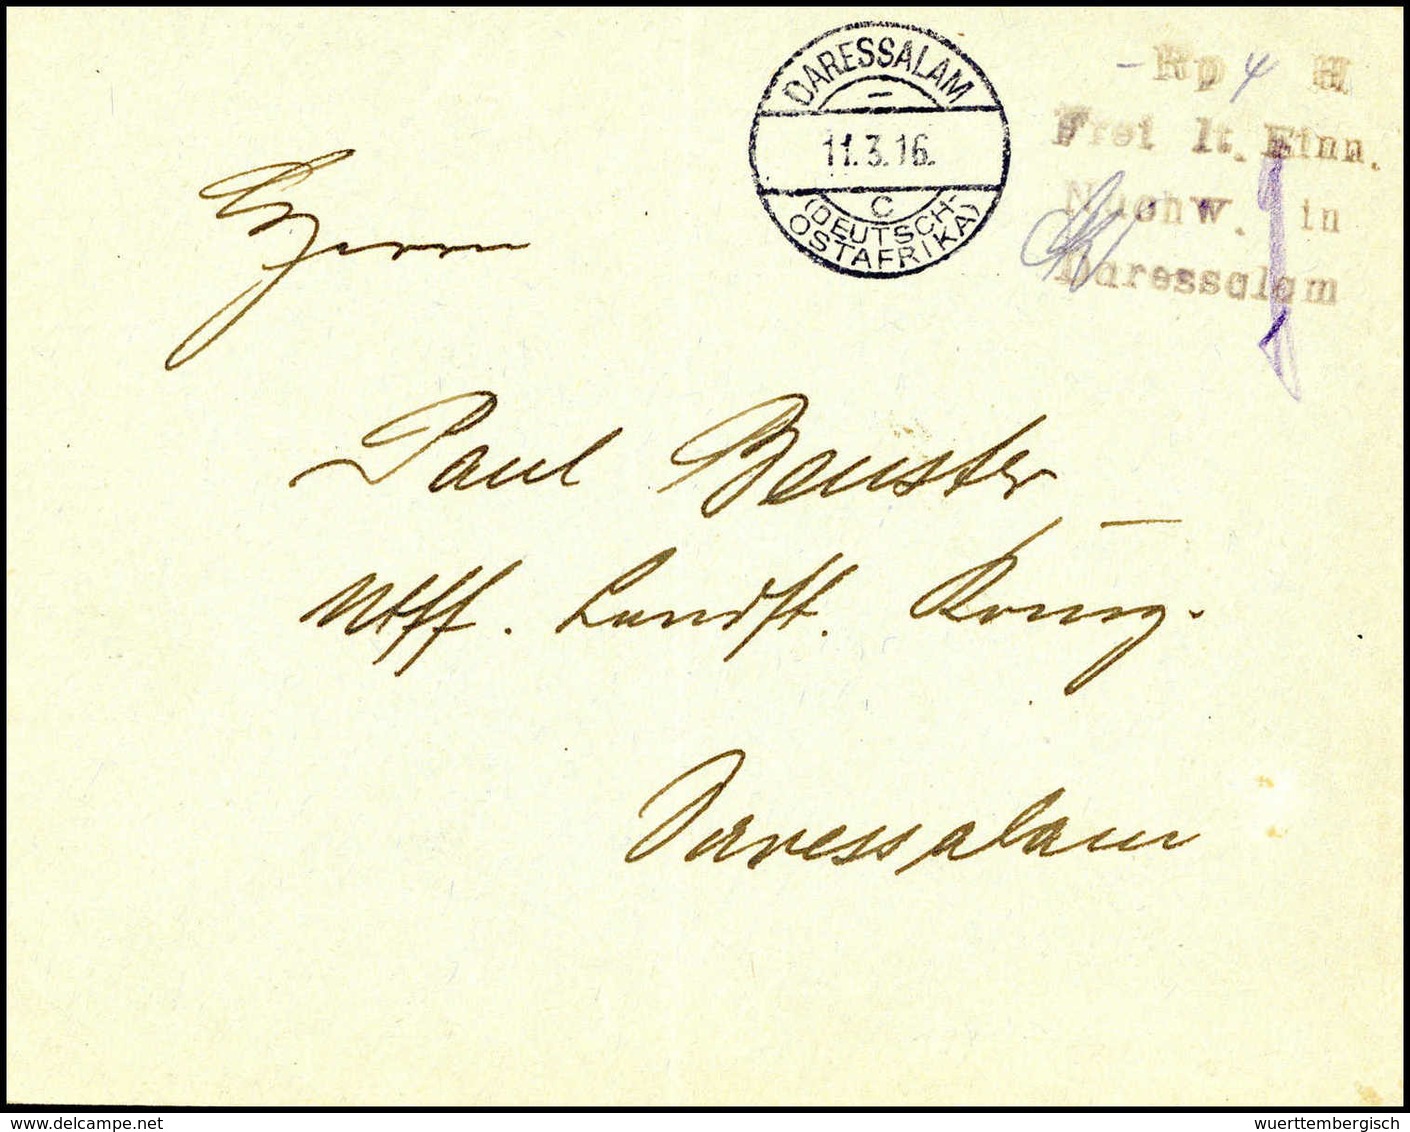 DARESSALAM
11.3.16.
C
(DEUTSCH-
OSTAFRIKA)
- Rp 4 H
Frei lt. Einn.
Nachw. in
Daressalam
Herrn
Paul Beuster
Utff. Landst. König.
Daressalam
wuerttembergisch